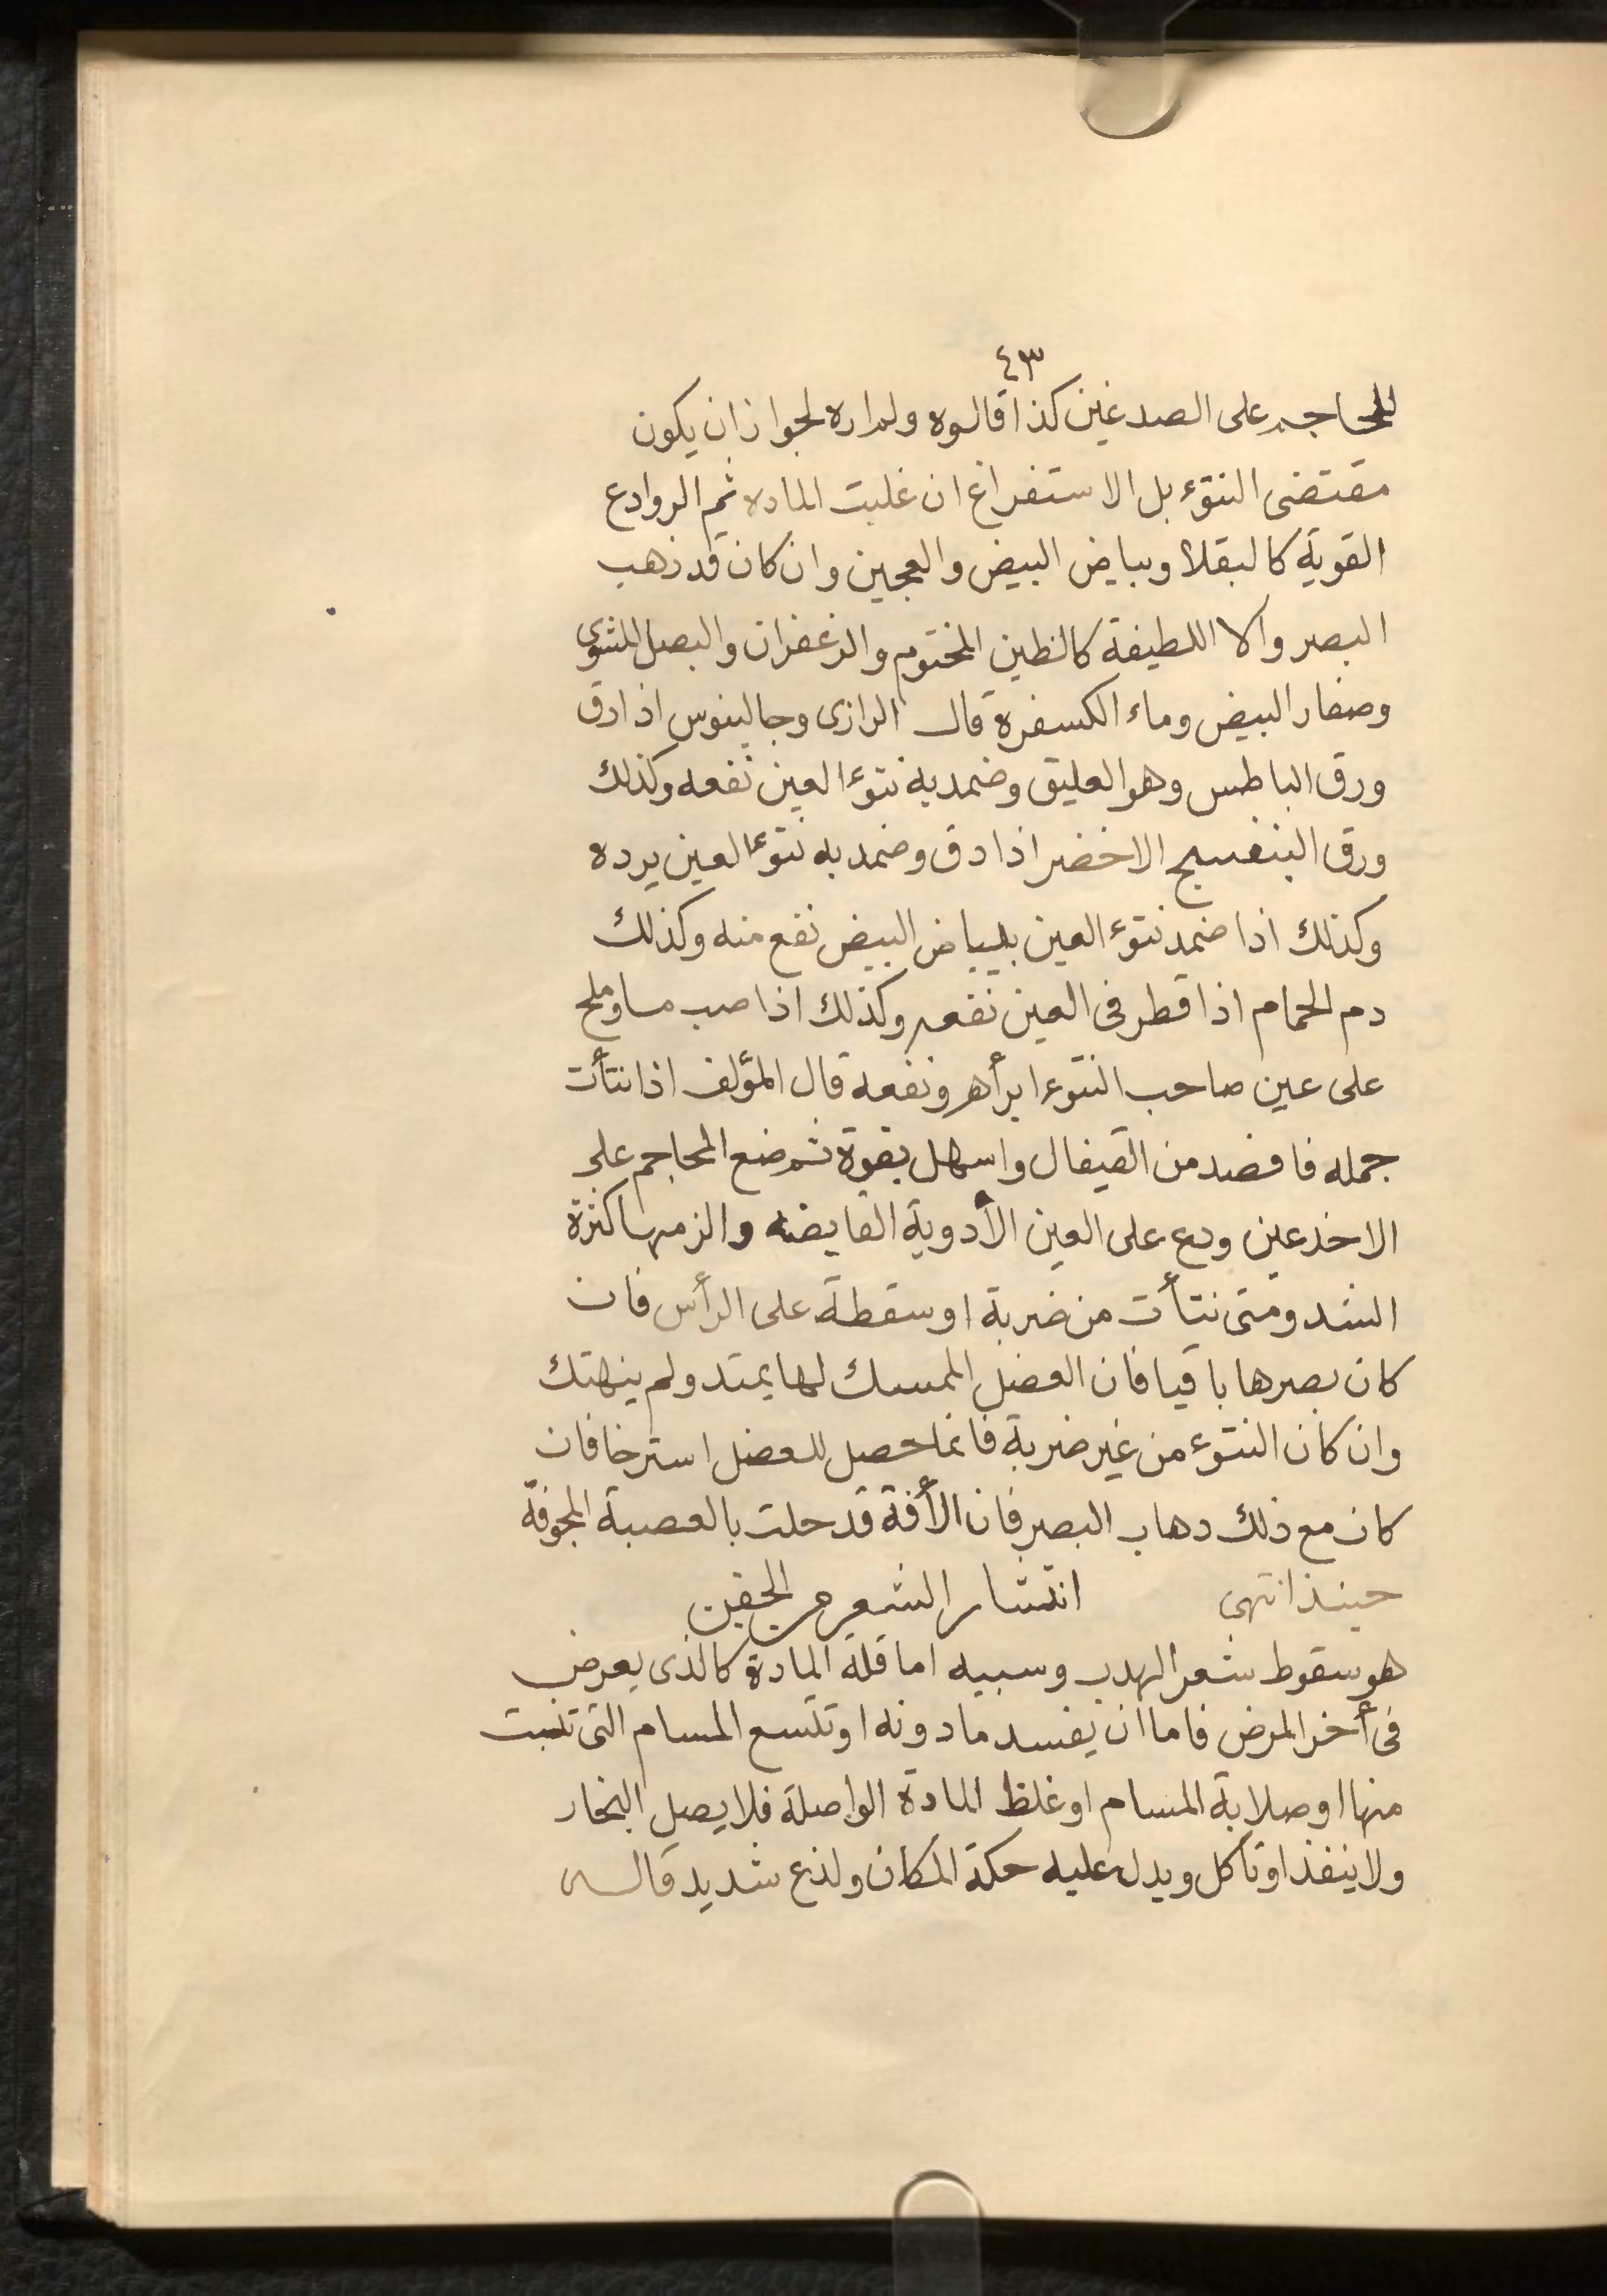 ٤٣
المحاجم على الصدغين كذا قالوه ولم اره لجوازان يكون
مقتضى النتوء بل الاستفراغ ان غلبت الماده ثم الروادع
القوية كالبقلا وبياض البيض والعجين وان كان قد ذهب
البصر والا اللطيفة كالطين المختوم والزعفران والبصل المشوى
وصفار البيض وماء الكسفرة قال الرازى وجالينوس اذا دق
ورق الباطس وهو العليق وضمد به نتوء العين نفعه وكذلك
ورق البنفسج الاخضر اذا دق وضمد به نتوء العين يرده
وكذلك اذا ضمد نتوء العين ببياض البيض نفع منه وكذلك
دم الحمام اذا قطر فى العين نفعه وكذلك اذا صب ما وملح
على عين صاحب النتوء ابرأه ونفعه قال المؤلف اذا نتأت
جمله فافصد من القيفال واسهل بقوة ثم ضع المحاجم على
الاخدعين ودع على العين الأدوية القابضه والزمها كثرة
الشد ومتى نتأت من ضربة او سقطة على الرأس فان
كان بصرها باقيا فان العضل الممسك لها يمتد ولم ينهتك
وان كان النتوء من غير ضربة فانما حصل للعضل استرخا فان
كان مع ذلك دهاب البصر فان الأفة قد حلت بالعصبة المجوفة
حينذ انتهى انتشار الشعر من الجفن
هو سقوط شعر الهدب وسببه اما قلة المادة كالذى يعرض
فى أخر المرض فاما ان يفسد مادونه او تتسع المسام التى تنبت
منها او صلابة المسام او غلظ المادة الواصلة فلا يصل البخار
ولا ينفذ او تأكل ويدل عليه حكة المكان ولذع شديد قال